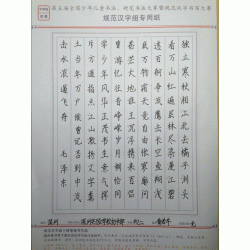 规范汉字组专用纸
独立寒秋湘江北去橘子洲头
看万山红遍层林尽染漫江碧
透百舸争流鹰击长空鱼翔浅
底万类霜天竞自由怅寥廓问
苍茫大地谁主沉浮携来百侣
曾游忆往昔峥嵘岁月稠恰同
学少年风华正茂书生意气挥
斥方遒指点江山激扬文字粪
土当年万户侯曾记否到中流
击水浪遏飞舟 毛泽东